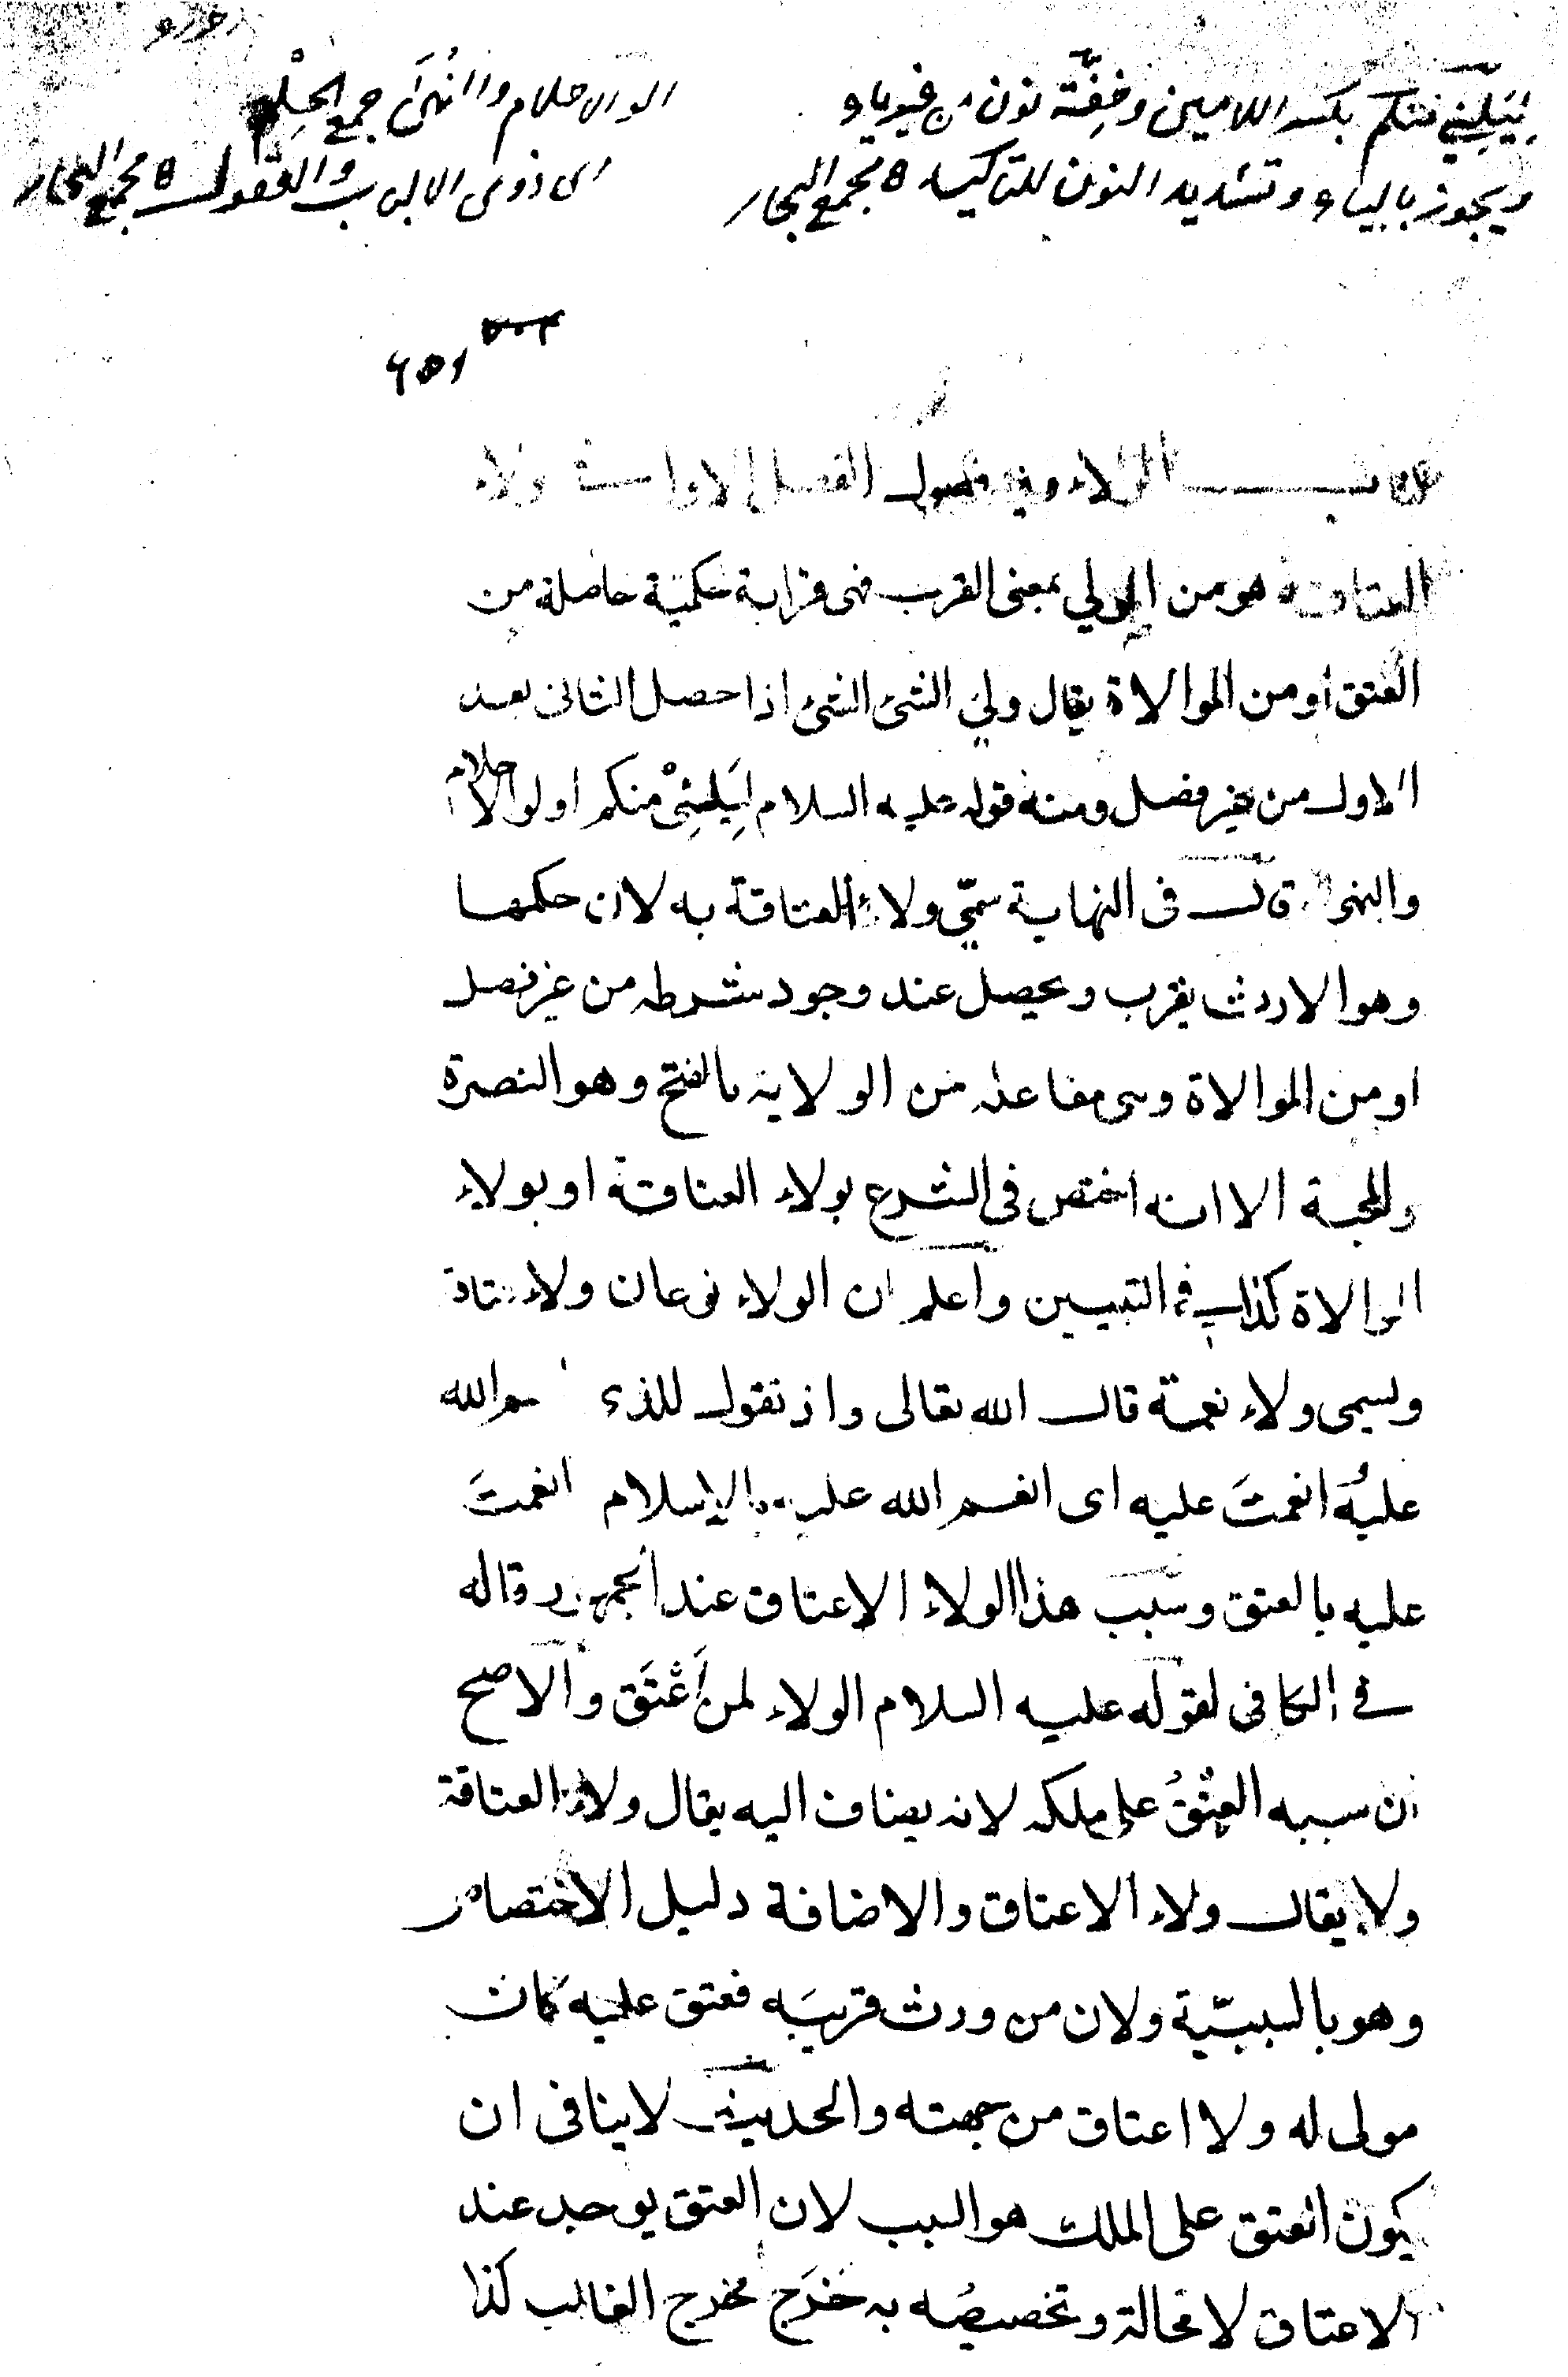 لِيَلِنِي منكم بكسر اللامين وخِفّة نون من غير ياء
ويجوز بالياء وتشديد النون للتاكيد ه مجمع البحار
اولو الاحلام والنُهَى جمع الحِلْم
اى ذوى الالباب والعقول ه مجمع البحار
كتاب الولاء وفيه فصول الفصل الاول فى ولاء
العتاقة هو من الولي بمعنى القرب فهى قرابة حكمية حاصلة من
العتق او من الموالاة يقال ولي الشئ الشئ اذا حصل الثانى بعد
الاول من غير فصل ومنه قوله عليه السلام لِيَلِنِىْ منكم اولو الاحلام
والنهى قال فى النهاية سمّي ولاء العتاقة به لان حكمها
وهو الارث يقرب ويحصل عند وجود شرطه من غير فصل
او من الموالاة وهى مفاعلة من الولاية بالفتح وهو النصرة
والمحبة الا انه اختص فى الشرع بولاء العتاقة او بولاء
الموالاة كذا فى التبيين واعلم ان الولاء نوعان ولاء عتاقة
ويسمى ولاء نعمة قال الله تعالى واذ تقول للذى انعم الله
عليه انعمتَ عليه اى انعم الله عليه بالاسلام انعمتَ
عليه بالعتق وسبب هذا الولاء الاعتاق عند الجمهور وقاله
فى الكافى لقوله عليه السلام الولاء لمن أَعْتَق والاصح
ان سببه العِتْقُ على ملكه لانه يضاف اليه يقال ولاء العتاقة
ولا يقال ولاء الاعتاق والاضافة دليل الاختصاص
وهو بالسببيّة ولان من ورث قريبه فعتق عليه كان
مولى له ولا اعتاق من جهته والحديث لا ينافى ان
يكون العتق على الملك هو السبب لان العتق يوجد عند
الاعتاق لا محالة وتخصيصُه به خَرَج مخرج الغالب كذا